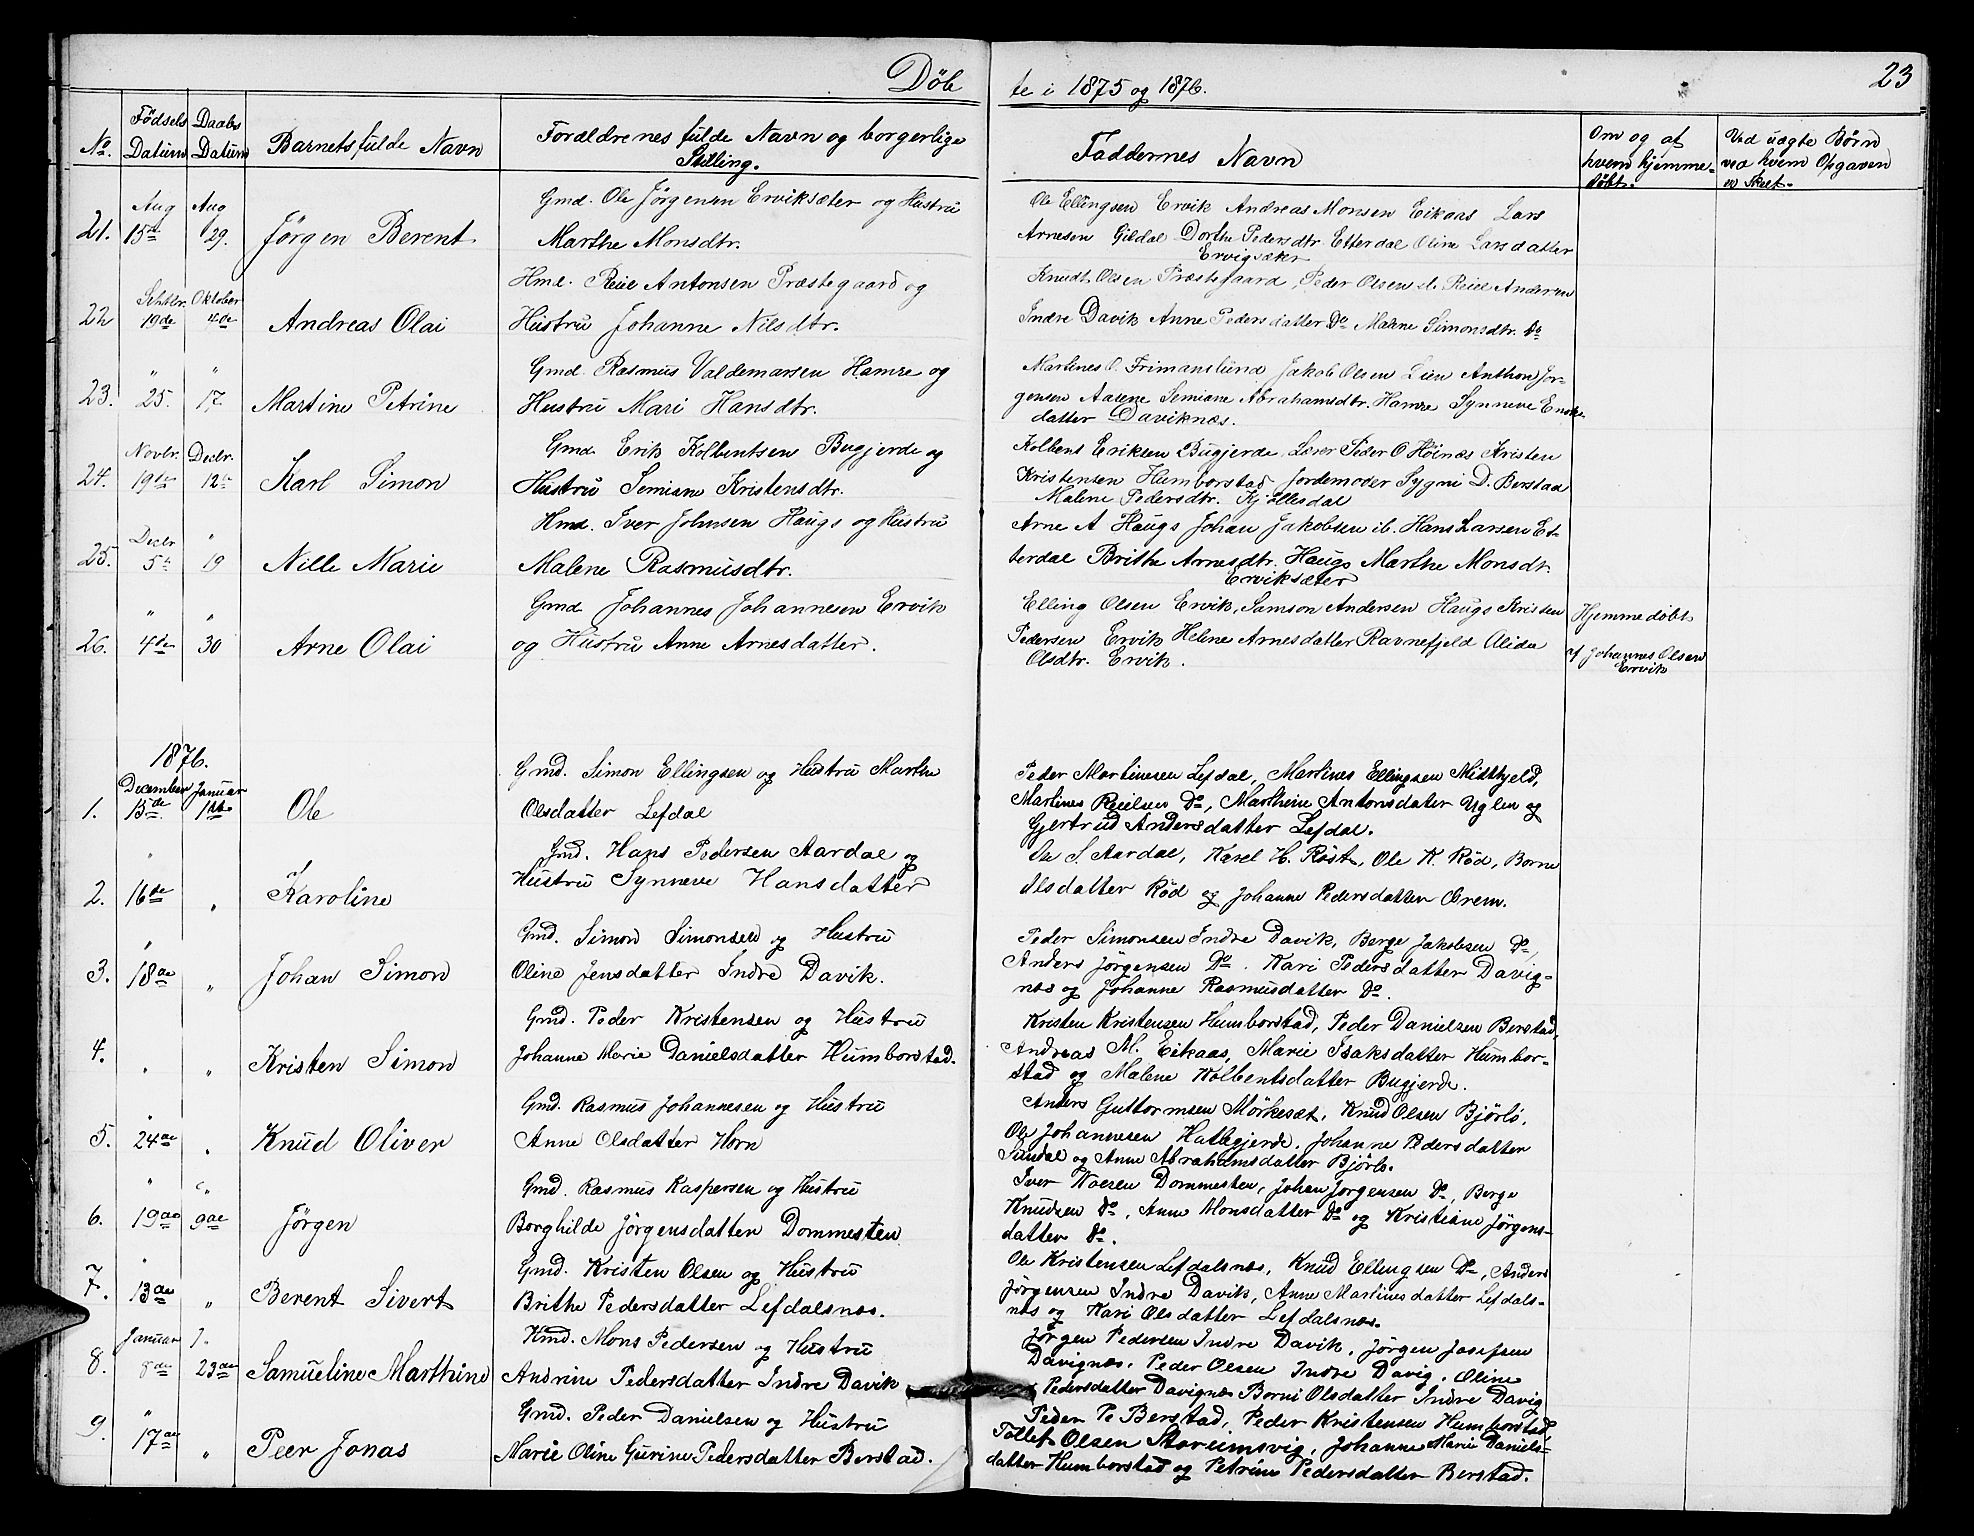 Døb
te i 1875 og 1876.
23
No.
Fødsels Datum
Daabs Datum
Barnets fulde Navn
Forældrenes fulde Navn og borgerlige Stilling.
Faddernes Navn
Om og af hvem hjemmedøbt.
Ved uægte Børn ved hvem Opgaven er Skeet.
21. Aug 15de Aug 29. Jørgen Berent
Gmd. Ole Jørgensen Erviksæter og Hustru
Marthe Monsdtr.
Ole Ellingsen Ervik Andreas Monsen Eikaas Lars
Arnesen Gildal Dorthe Pedersdtr Etterdal Oline Larsdatter
Ervigsæter
22 Septbr. 19de Oktober 4de Andreas Olai
Hmd. Reiel Antonsen Præstegaard og
Hustru Johanne Nilsdtr.
Knudt Olsen Præstegaard, Peder Olsen Reiel Andersen
Indre Davik Anne Pedersdatter Do Malene Simonsdtr. Do
23. " 25. " 17. Martine Petrine
Gmd. Rasmus Valdemarsen Hamre og
Hustru Mari Hansdtr.
Martines O. Frimanslund Jakob Olsen Lien Anthon Jør-
gensen Aalene Semiane Abrahamsdtr. Hamre Synneve
datter Daviknæs.
24. Novbr. 19de Decbr. 12te Karl Simon
Gmd. Erik Kolbentsen Bugjerde og
Hustru Semiane Kristensdtr.
Kolbent Eriksen Bugjerde, Læser Peder O Høinæs Kristen
Kristensen Humborstad, Jordemoder Sygni D. Berstad
Malene Pedersdtr. Kjøllesdal
25. Decbr 5te " 19 Nille Marie
Hmd. Iver Johnsen Haugs og Hustru
Malene Rasmusdtr.
Arne A Haugs Johan Jakobsen ib. Hans Larsen Et-
terdal Brithe Arnesdtr. Haugs Marthe Monsdtr.
Erviksæter
26. " 4de " 30 Arne Olai
Gmd. Johannes Johannesen Ervik
og Hustru Anne Arnesdatter.
Elling Olsen Ervik, Samson Andersen Haugs Kristen
Pedersen Ervik Helene Arnesdatter Ravnefjeld Alida
Olsdtr. Ervik.
Hjemmedøbt
af Johannes Olsen
Ervik
1876.
1. December 15de Januar 1ste Ole
Gmd. Simon Ellingsen og Hustru Marthe
Olsdatter Lefdal
Peder Martinesen Lefdal, Martines Ellingsen Midthjeld,
Martines Reielsen Do, Marthine Antonsdatter Uglen og
Gjertrud Andersdatter Lefdal.
2. " 16de " Karoline
Gmd. Hans Pedersen Aardal og
Hustru Synneve Hansdatter
S Aardal, Karel H. Røst, Ole K. Rød, Borne
Olsdatter Rød og Johanne Pedersdatter Ørem.
3. " 18de " Johan Simon
Gmd. Simon Simonsen og Hustru
Oline Jensdatter Indre Davik.
Peder Simonsen Indre Davik, Berge Jakobsen Do,
Anders Jørgensen Do. Kari Pedersdatter Davig-
næs og Johanne Rasmusdatter Do.
4. " " Kristen Simon
Gmd. Peder Kristensen og Hustru
Johanne Marie Danielsdatter Humborstad.
Kristen Kristensen Humborstad, Peder Danielsen Berstad,
Andreas M. Eikaas, Marie Isaksdatter Humbor-
stad og Malene Kolbentsdatter Bugjerde.
5. " 24de " Knud Oliver
Gmd. Rasmus Johannesen og Hustru
Anne Olsdatter Horn
Anders Guttormsen Mørkesæt, Knud Olsen Bjørlo,
Ole Johannesen Hatlegjerde, Johanne Pedersdatter
Sandal og Anne Abrahamsdatter Bjørlo.
6. " 19de " 9de Jørgen
Gmd. Rasmus Kaspersen og Hustru
Borghilde Jørgensdatter Dommesten
Iver Noesen Dommesten, Johan Jørgensen Do, Berge
Knudsen Do, Anne Monsdatter Do og Kristiane Jørgens-
datter Do.
7. " 13de " Berent Sivert
Gmd. Kristen Olsen og Hustru
Brithe Pedersdatter Lefdalsnæs.
Ole Kristensen Lefdalsnæs, Knud Ellingsen Do, Anders
Jørgensen Indre Davik, Anne Martinesdatter Lefdals-
næs og Kari Olsdatter Lefdalsnæs.
8. Januar 8de 23de Samueline Marthine
Hmd. Mons Pedersen og Hustru
Andrine Pedersdatter Indre Davik
Jørgen Pedersen Indre Davik, Jørgen Josefsen
Davignæs, Peder Olsen Indre Davig, Oline
Pedersdatter Davignæs Borni Olsdatter Indre Davig
9. " 17de " Peer Jonas
Gmd. Peder Danielsen og Hustru
Marie Oline Gurine Pedersdatter Berstad.
Peder Pe Berstad, Peder Kristensen Humborstad,
Tollef Olsen Storeimsvig, Johanne Marie Daniels-
datter Humborstad og Petrine Pedersdatter Berstad.